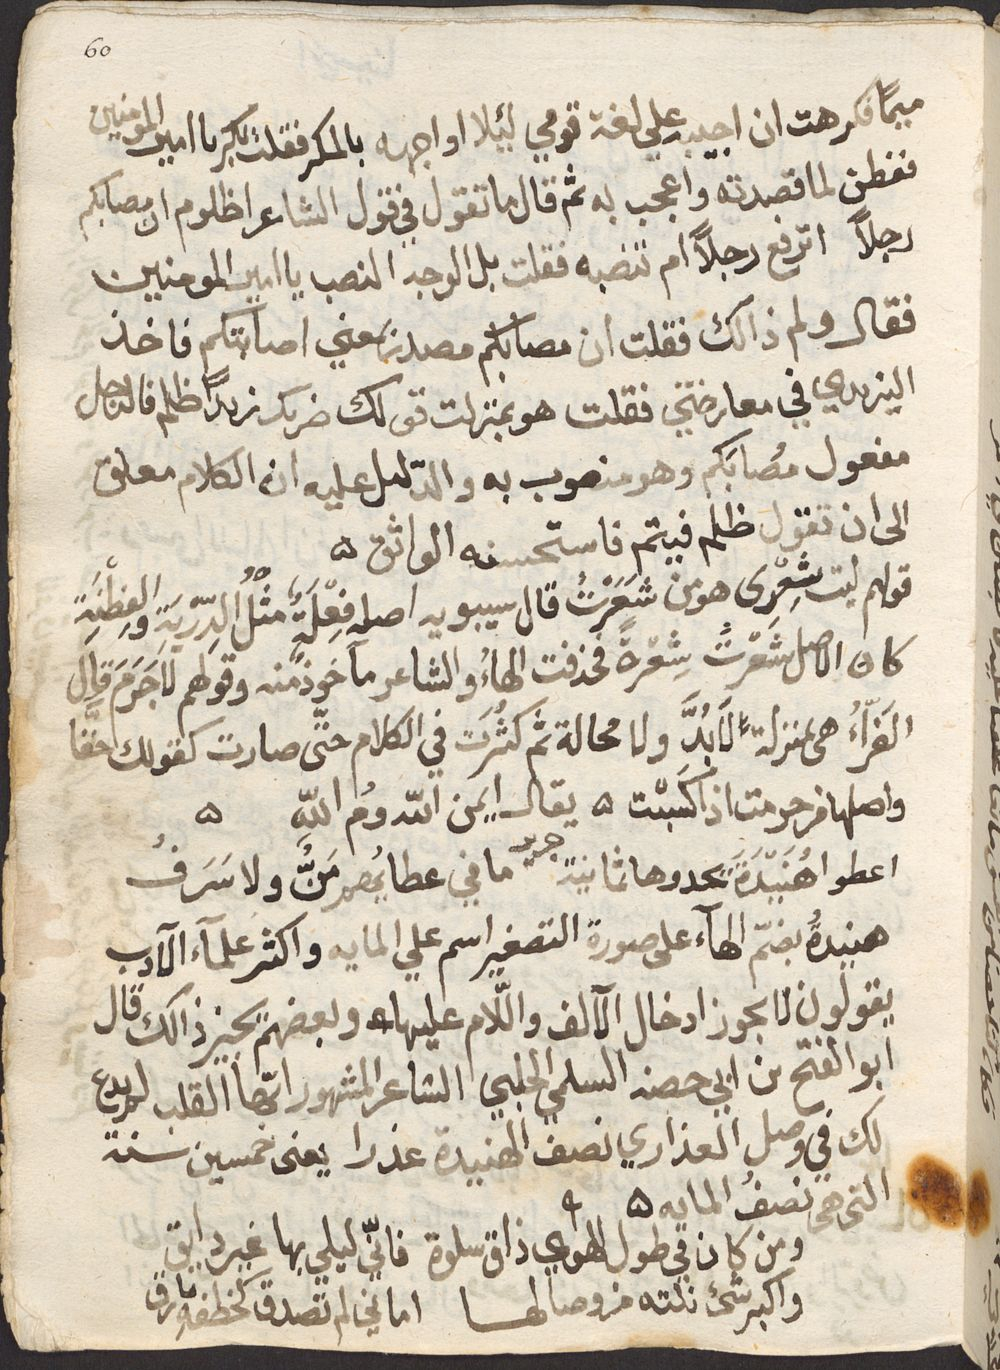 60
ميمًا فكرهت ان اجيبه علي لغة قومي ليئلا اواجهه بالمكر فقلت بكر ياامير المومنين
ففطن لما قصدته واعجب به ثم قال ما تقول في قول الشاعر اظلوم ان مصابكم
رجلاً اترفع رجلاً ام تنصبه فقلت بل الوجه النصب يا امير المومنين
فقال ولم ذالك فقلت ان مصابكم مصدر بمعني اصابتكم فاخذ
اليزيدي في معارضتي فقلت هو بمنزلت قولك ضربك زيداً ظلم فالرجل
مفعول مُصابكم وهو منصوب به والدّليل عليه ان الكلام معلق
الى ان تقول ظلم فيتم فاستحسنه الواثق ه
قولهم ليت شِعْرِى هو من شَعَرْتُ قال سيبويه اصله فِعْلَةٌ مثلُ الدِّرْيَةِ والفِطْنَةِ
كان الاصل شَعَرْتُ شِعْرَةً فحذفت الهاءُ والشاعر مأخوذ منه وقولهم لا جَرَمَ قال
الفَرّاءُ هى بمنزلة لَابُدَّ ولا محالة ثم كَثُرَت في الكلام حتّى صارت كقولك حقًّا
واصلها من جرمت اذا كَسَبْت ه يقال ايمن اللّه ومُ اللّهِ ه
جرير
اعطوا هُنَيْدَةَ يحدوها ثمانية ما في عطايهم مَنٌّ ولا سَرَفُ
هنيدةُ بضمّ الهآء على صورة التصغير اسم علي المايه واكثر علمآء الآدب
يقولون لا يجوز ادخال الآلف واللّام عليها وبعضهم يجيز ذالك قال
ابو الفتح بن ابي حصنه السلمي الحلبي الشاعر المشهور ايّها القلب لم يدع
لك في وصل العذاري نصف الهنيدة عذرا يعنى خمسين سنة
التى هي نصفُ المايه ه
ومن كان في طول الهوي ذاق سلوة فانّي ليلي بها غير دايق
واكبر شئ نلته من وصالها اماني لم تصدق كخطفة بارق